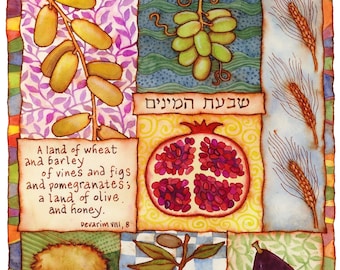 שבעת המינים
A land of wheat
and barley
of vines and figs
and pomegranates;
a land of olive
and honey.
Devarim VIII, 8